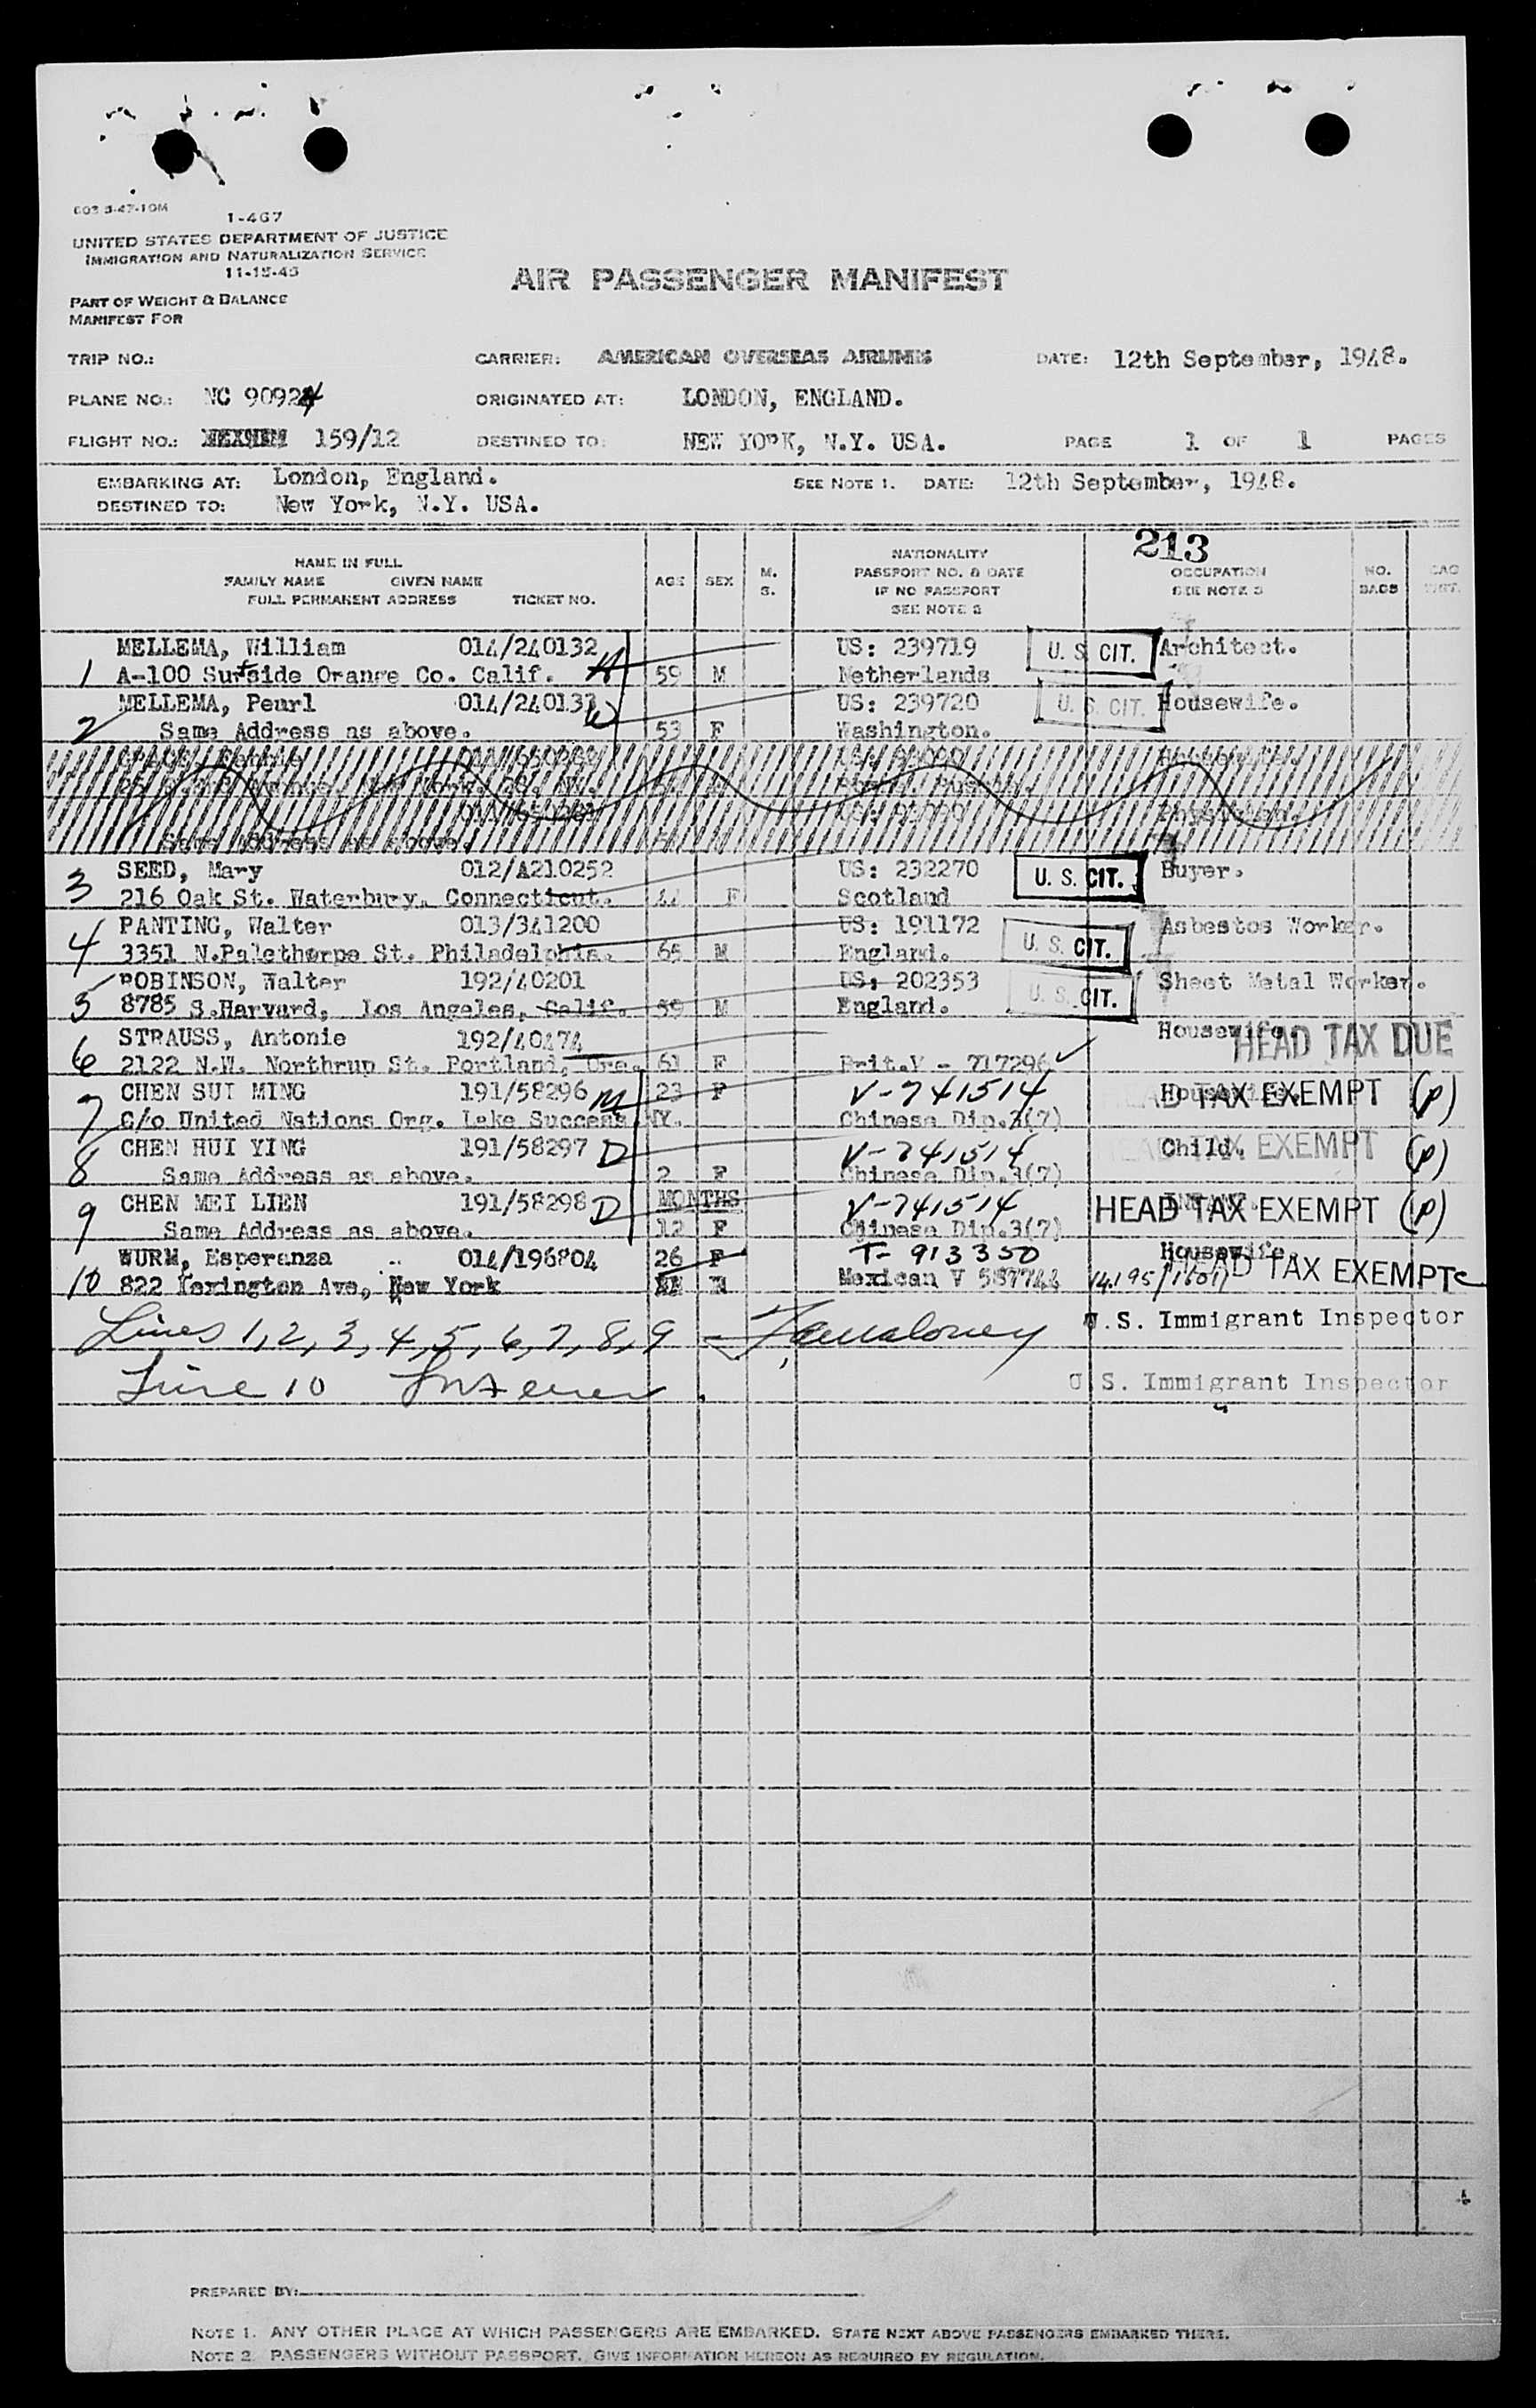 603 3-47-10M
1-467
UNITED STATES DEPARTMENT OF JUSTICE
IMMIGRATION AND NATURALIZATION SERVICE
11-15-45
AIR PASSENGER MANIFEST
PART OF WEIGHT & BALANCE
MANIFEST FOR
TRIP NO.: CARRIER: AMERICAN OVERSEAS AIRLINES DATE: 12th September, 1948.
PLANE NO.: NC 90924 ORIGINATED AT: LONDON, ENGLAND.
FLIGHT NO.: 159/12 DESTINED TO: NEW YORK, N.Y. USA. PAGE 1 OF 1 PAGES
EMBARKING AT: London, England. SEE NOTE 1. DATE: 12th September, 1948.
DESTINED TO: New York, N.Y. USA.
213
NAME IN FULL
FAMILY NAME GIVEN NAME
FULL PERMANENT ADDRESS TICKET NO. AGE SEX M. S. NATIONALITY PASSPORT NO. & DATE IF NO PASSPORT SEE NOTE 2 OCCUPATION SEE NOTE 3 NO. BAGS
MELLEMA, William 014/240132 US: 239719 U. S. CIT. Architect.
1 A-100 Surfside Orange Co. Calif. H 59 M Netherlands
MELLEMA, Peurl 014/240133 W US: 239720 U. S. CIT. Housewife.
2 Same Address as above. 53 F Washington.
Same Address as above.
SEED, Mary 012/A210252 US: 232270 U. S. CIT. Buyer.
3 216 Oak St. Waterbury, Connecticut. F Scotland
PANTING, Walter 013/341200 US: 191172 U. S. CIT. Asbestos Worker.
4 3351 N.Palethorpe St. Philadelphia. 65 M England.
ROBINSON, Walter 192/40201 US: 202353 U. S. CIT. Sheet Metal Worker.
5 8785 S.Harvard, Los Angeles, Calif. 59 M England.
STRAUSS, Antonie 192/40174 Housewife. HEAD TAX DUE
6 2122 N.W. Northrup St. Portland, Ore. 61 F Brit.V - 717296
CHEN SUI MING 191/58296 M 23 F V-741514 Housewife. HEAD TAX EXEMPT (p)
7 C/o United Nations Org. Lake Success.NY. Chinese Dip.3(7)
CHEN HUI YING 191/58297 D V-741514 Child. HEAD TAX EXEMPT (p)
8 Same Address as above. 2 F Chinese Dip.3(7)
CHEN MEI LIEN 191/58298 D MONTHS V-741514 HEAD TAX EXEMPT (p)
9 Same Address as above. 12 F Chinese Dip.3(7)
WURM, Esperanza 014/196804 26 F T-913350 Housewife. HEAD TAX EXEMPT
10 822 Lexington Ave, New York Mexican V 587744
Lines 1, 2, 3, 4, 5, 6, 7, 8, 9 U.S. Immigrant Inspector
Line 10 U.S. Immigrant Inspector
PREPARED BY:
NOTE 1. ANY OTHER PLACE AT WHICH PASSENGERS ARE EMBARKED. STATE NEXT ABOVE PASSENGERS EMBARKED THERE.
NOTE 2. PASSENGERS WITHOUT PASSPORT. GIVE INFORMATION HEREON AS REQUIRED BY REGULATION.